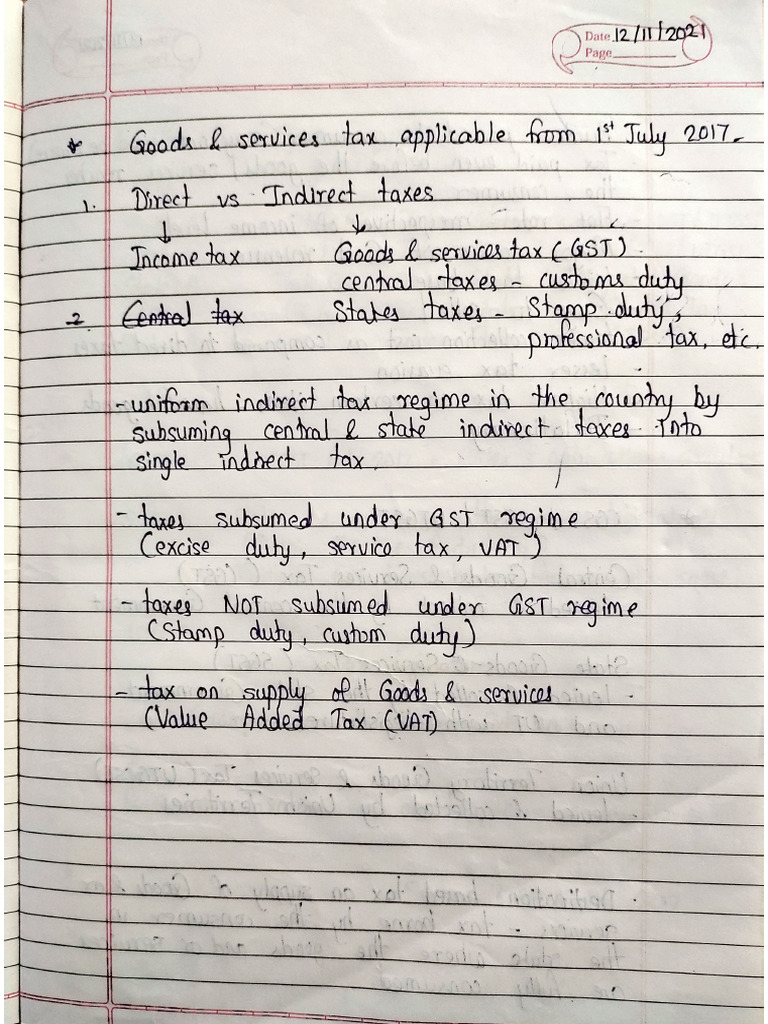 Date 12/11/2021
Page
* Goods & services tax applicable from 1st July 2017.
1. Direct vs Indirect taxes
↓ ↓
Income tax Goods & services tax (GST).
central taxes - customs duty
2. Central tax States taxes - Stamp duty,
professional tax, etc.
- uniform indirect tax regime in the country by
subsuming central & state indirect taxes into
single indirect tax.
- taxes subsumed under GST regime
(excise duty, service tax, VAT)
- taxes NOT subsumed under GST regime
(Stamp duty, custom duty)
- tax on supply of Goods & services
(Value Added Tax (VAT)